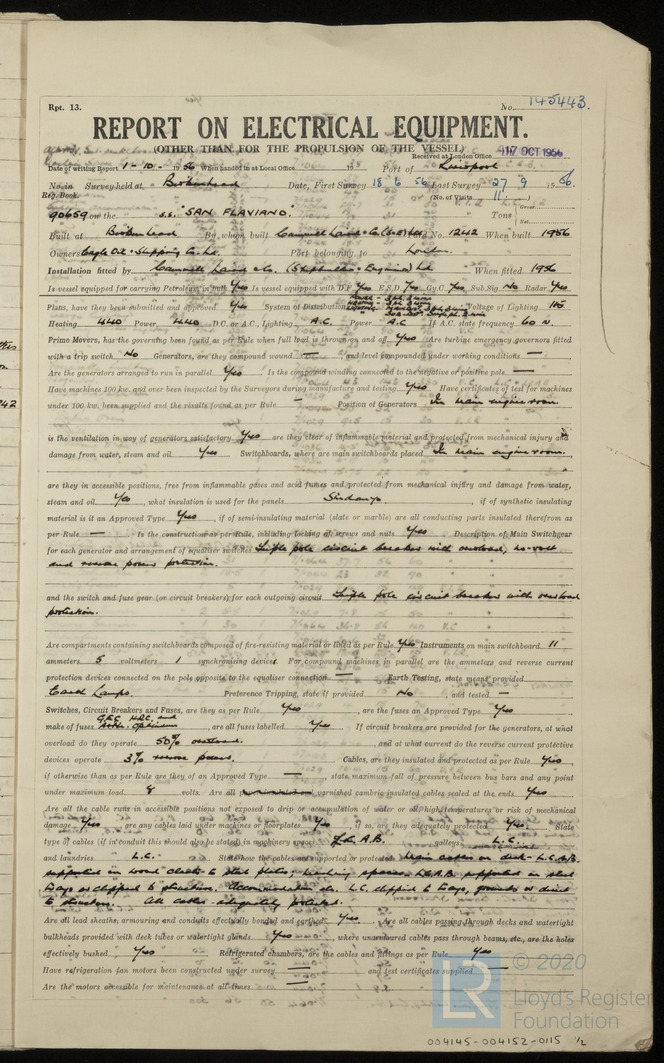 Rpt. 13.
No. 145443.
REPORT ON ELECTRICAL EQUIPMENT.
(OTHER THAN FOR THE PROPULSION OF THE VESSEL)
Received at London Office 17 OCT 1956
Date of writing Report 1-10-1956 When handed in at Local Office 19 Port of Liverpool
No. in Survey held at Birkenhead Date, First Survey 18 6 56 Last Survey 27 9 1956.
Reg. Book. (No. of Visits 11)
90659 on the S.S. "SAN FLAVIANO" Tons Gross Net
Built at Birkenhead By whom built Cammell Laird & Co Yard No. 1242 When built 1956
Owners Eagle Oil & Shipping Co. Ltd. Port belonging to London.
Installation fitted by Cammell Laird & Co. (Shipbuilders & Engineers) Ltd When fitted 1956
Is vessel equipped for carrying Petroleum in bulk Yes Is vessel equipped with D.F. Yes E.S.D. Yes Gy.C. Yes Sub.Sig. No Radar Yes
Plans, have they been submitted and approved Yes System of Distribution Voltage of Lighting 115
Heating 440 Power 440 D.C. or A.C., Lighting A.C. Power A.C If A.C. state frequency 60 N
Prime Movers, has the governing been found as per Rule when full load is thrown on and off Yes Are turbine emergency governors fitted
with a trip switch No Generators, are they compound wound — and level compounded under working conditions —
Are the generators arranged to run in parallel Yes Is the compound winding connected to the negative or positive pole —
Have machines 100 kw. and over been inspected by the Surveyors during manufacture and testing Yes Have certificates of test for machines
under 100 kw. been supplied and the results found as per Rule — Position of Generators In main engine room
is the ventilation in way of generators satisfactory Yes are they clear of inflammable material and protected from mechanical injury and
damage from water, steam and oil Yes Switchboards, where are main switchboards placed In main engine room.
are they in accessible positions, free from inflammable gases and acid fumes and protected from mechanical injury and damage from water,
steam and oil Yes, what insulation is used for the panels Sindanyo, if of synthetic insulating
material is it an Approved Type Yes, if of semi-insulating material (slate or marble) are all conducting parts insulated therefrom as
per Rule — Is the construction as per Rule, including locking of screws and nuts Yes Description of Main Switchgear
for each generator and arrangement of equaliser switches Triple pole circuit breaker with overload, no-volt
and reverse power protection.
and the switch and fuse gear (or circuit breakers) for each outgoing circuit Triple pole circuit breaker with overload
protection.
Are compartments containing switchboards composed of fire-resisting material or lined as per Rule Yes Instruments on main switchboard 11
ammeters 5 voltmeters 1 synchronising devices. For compound machines in parallel are the ammeters and reverse current
protection devices connected on the pole opposite to the equaliser connection — Earth Testing, state means provided
Earth Lamps. Preference Tripping, state if provided No, and tested —
Switches, Circuit Breakers and Fuses, are they as per Rule Yes, are the fuses an Approved Type Yes
make of fuses G.E.C. H.R.C. and, are all fuses labelled Yes If circuit breakers are provided for the generators, at what
overload do they operate 50% overload., and at what current do the reverse current protective
devices operate 3% reverse power. Cables, are they insulated and protected as per Rule Yes,
if otherwise than as per Rule are they of an Approved Type —, state maximum fall of pressure between bus bars and any point
under maximum load 8 volts. Are all varnished cambric insulated cables sealed at the ends Yes
Are all the cable runs in accessible positions not exposed to drip or accumulation of water or oil, high temperatures or risk of mechanical
damage Yes are any cables laid under machines or floorplates Yes, if so, are they adequately protected Yes. State
type of cables (if in conduit this should also be stated) in machinery spaces L.C.A.B. galleys L.C.
and laundries L.C. State how the cables are supported or protected Main cables on deck - L.C.A.B.
supported in wood cleats to steel plates; machinery spaces L.C.A.B. supported on steel
trays or clipped to structure. Accommodation etc. L.C. clipped to trays, grounds or direct
to structure. All cables adequately protected.
Are all lead sheaths, armouring and conduits effectively bonded and earthed Yes. Are all cables passing through decks and watertight
bulkheads provided with deck tubes or watertight glands Yes, where unarmoured cables pass through beams, etc., are the holes
effectively bushed Yes Refrigerated chambers, are the cables and fittings as per Rule Yes
Have refrigeration fan motors been constructed under survey — and test certificates supplied —
Are the motors accessible for maintenance at all times —
© 2020
Lloyd's Register
Foundation
004145-004152-0115 1/2